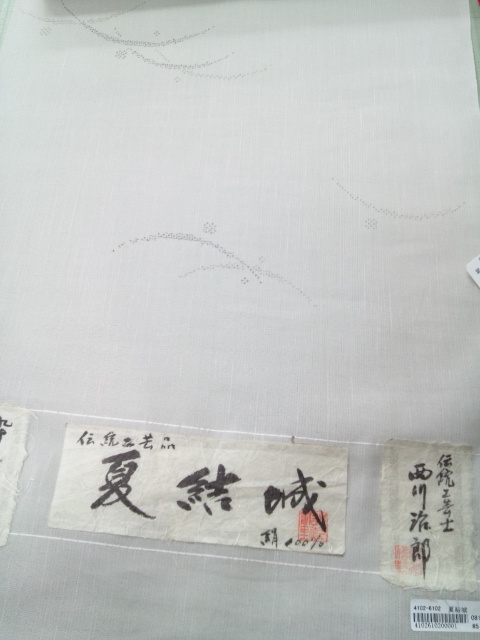 伝統工芸品
夏結城
絹100%
伝統工芸士
西川治郎
4102-6102 夏結城
4102610200001